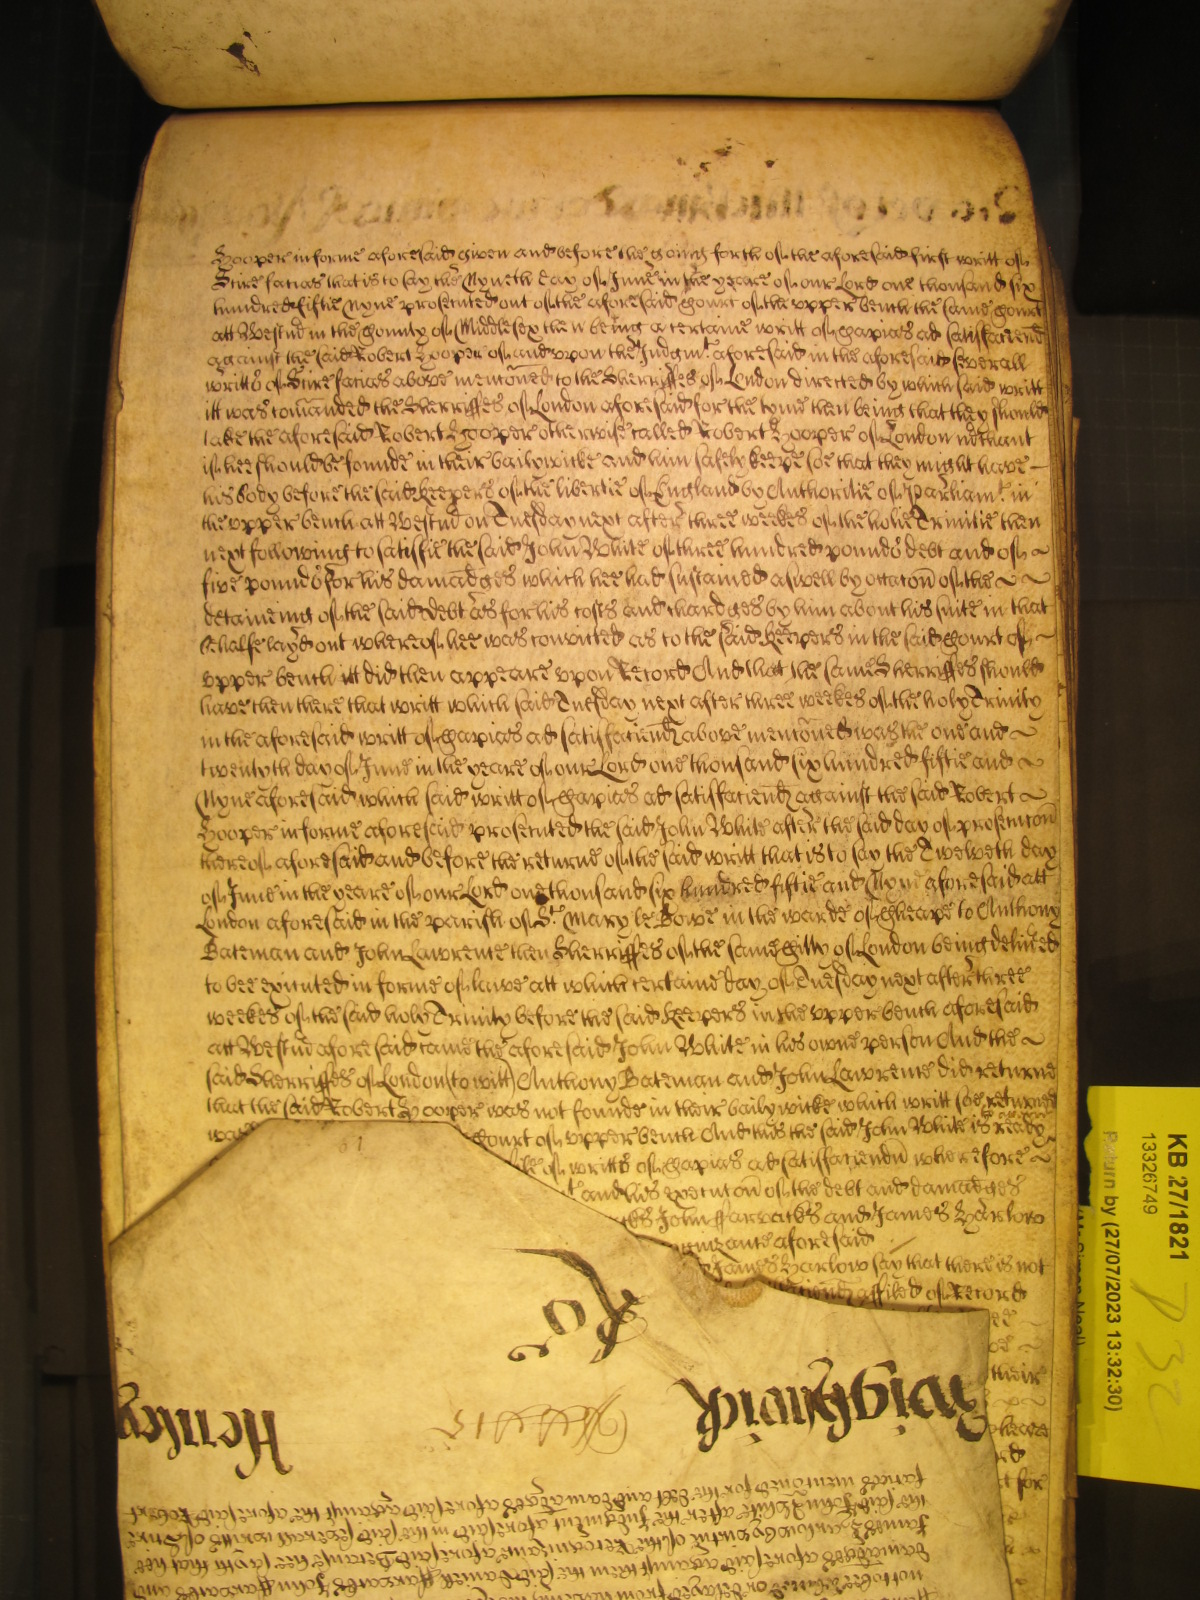 Hooper in forme aforesaid given and before the going forth of the aforesaid first writt of
Scire facias that is to say the Nyneth day of June in the yeare of our Lord one thousand six
hundred fiftie Nyne prosecuted out of the aforesaid Court of the upper bench the same Court
att Westm̃ in the County of Middlesex then being a certaine writt of Capias ad satisfaciend
against the said Robert Hooper of and upon the Judgmt aforesaid in the aforesaid severall
writts of Scire facias above menc̃oned to the Sherriffes of London directed by which said writt
itt was com̃anded the Sherriffes of London aforesaid for the tyme then being that they should
take the aforesaid Robert Hooper otherwise called Robert Hooper of London m̃chant
if hee should be founde in their bailywicke and him safely keepe soe that they might have
his body before the said Keepers of the libertie of England by Authoritie of Parliamt in
the upper bench att Westm̃ on Tuesday next after three weekes of the holie Trinitie then
next following to satisfie the said John White of three hundred pounds debt and of
five pounds for his damadges which hee had sustained aswell by occac̃on of the
deteineing of the said debt as for his costs and chardges by him about his suite in that
behalfe layd out whereof hee was convicted as to the said Keepers in the said Court of
upper bench itt did then appeare upon Record And that the same Sherriffes should
have then there that writt which said Tuesday next after three weekes of the holy Trinity
in the aforesaid writt of Capias ad satisfaciend above menc̃oned was the one and
twentyth day of June in the yeare of our Lord one thousand six hundred fiftie and
Nyne aforesaid which said writt of Capias ad satisfaciend against the said Robert
Hooper in forme aforesaid prosecuted the said John White after the said day of prosecuc̃on
thereof aforesaid and before the returne of the said writt that is to say the Twelveth day
of June in the yeare of our Lord one thousand six hundred fiftie and Nyne aforesaid att
London aforesaid in the parish of St Mary le Bowe in the warde of Cheape to Anthony
Bateman and John Lawrence then Sherriffes of the same Citty of London being deliṽed
to bee executed in forme of lawe att which certaine day of Tuesday next after three
weekes of the said holy Trinity before the said Keepers in the upper bench aforesaid
att Westm̃ aforesaid came the aforesaid John White in his owne person And the
said Sherriffes of London (to witt) Anthony Bateman and John Lawrence did returne
that the said Robert Hooper was not founde in their bailywicke which writt soe returned
was Court of upper bench And this the said John White is ready
of writts of Capias ad satisfaciend̃ wherefore
and his execuc̃on of the debt and damadges
John ffarvacks and James Harlow
aforesaid
James Harlow say that there is not
affiled of Record
their
for
61
Ro
Wightwick
Henley
faciãs menc̃oned for the debt and damages aforesaid against the aforesaid Robert
the said John White after the Judgment aforesaid in the said severall writts of Scire
James Harlow by virtue of the Recognizance aforesaid Because hee sayth that hee
damadges aforesaid against them the said Daniell ffarvacks John ffarvacks and
not to bee barred or delayed from
KB 27/1821
13326749
Return by (27/07/2023 13:32:30)
P 32